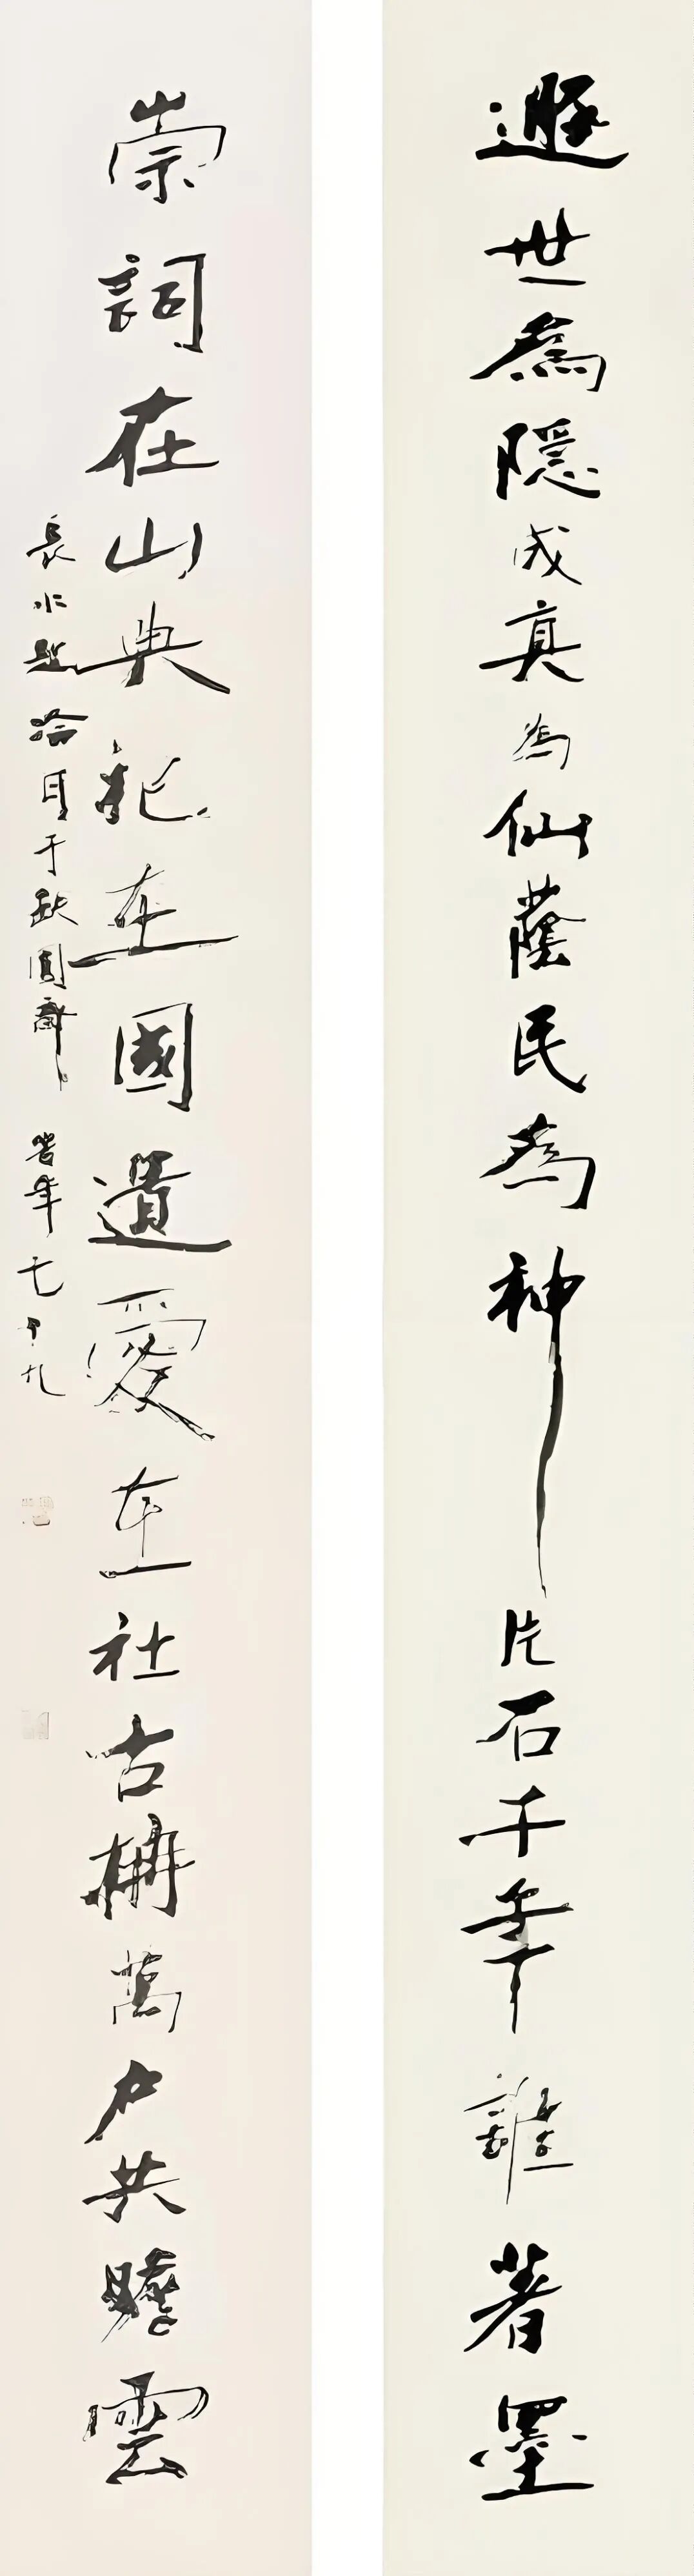 遯世為隱成真為仙蔭民為神片石千年誰著墨
崇詞在山典祀在國遺愛在社古栴萬户共瞻雲
長水題冷月于缺圓齋 時年七十九